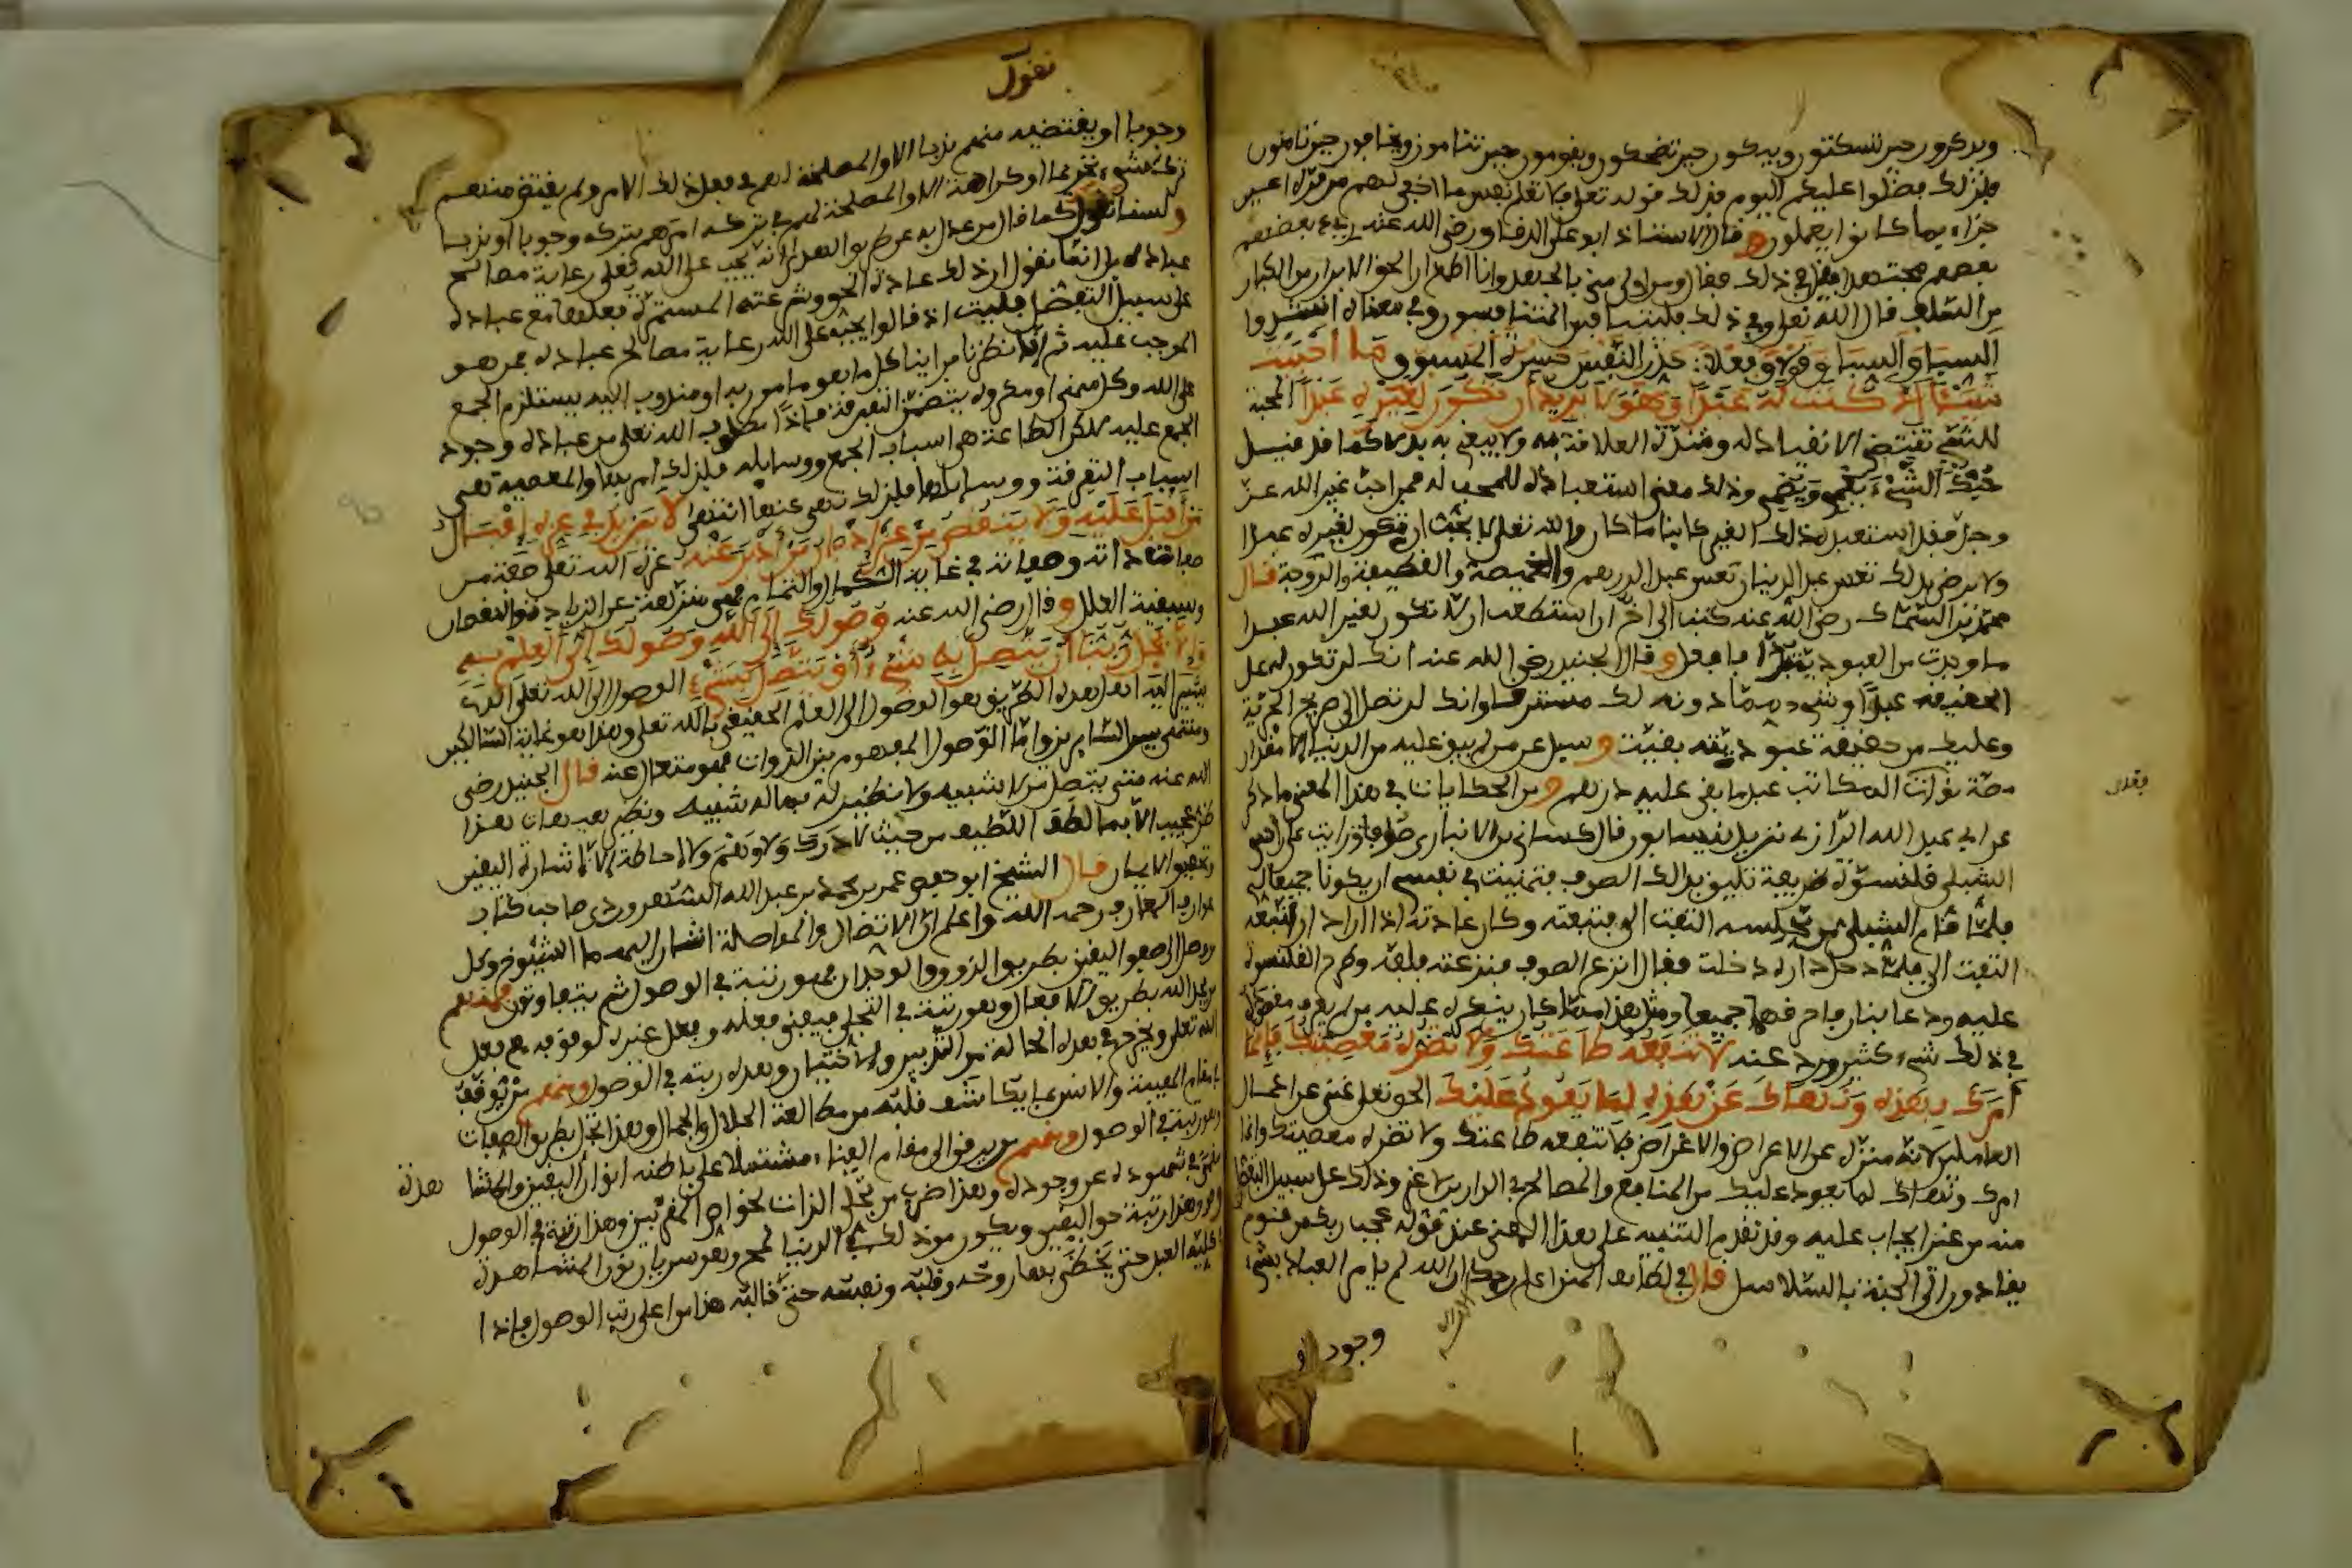 ويذكرون حين تسكتون ويبكون حين تضحكون ويقومون حين تنامون ويخافون حين تامنون
فلذلك فضلوا عليكم اليوم فذلك قوله تعلى فلا تعلم نفس ما اخفي لهم من قرة اعين
جزاء بما كانوا يعملون وقال الاستاذ ابو علي الدقاق رضي الله عنه
في ذلك فقال ومن اولى مني بالجهد وانا اطمع ان الحق الابرار من الكبار
من السلف قال الله تعلى وفي ذلك فليتنافس المتنافسون وفي معناه انشدوا
السباق السباق قولا وفعلا حذر النفس حسرة المسبوق ما احببت
شيئا الا كنت له عبدا وهو لا يريد ان تكون لغيره عبدا المحبة
للشيء تقتضي الانقياد له وشدة العلاقة به ولا يبغي به بدلا كما قد قيل
حبك الشيء يعمي ويصم وذلك معنى استعباده للمحب له فمن احب غير الله عز
وجل فقد استعبده ذلك الغير كاينا ما كان والله تعلى لا يحب ان تكون لغيره عبدا
ولا يرضى بذلك تعس عبد الدينار تعس عبد الدرهم والخميصة والقطيفة والزوجة قال
محمد بن السماك رضي الله عنه كتب الي اخ ان استطعت ان لا تكون لغير الله عبدا
ما وجدت من العبودية بدا فافعل وقال الجنيد رضي الله عنه انك لن تكون له على
الحقيقة عبدا وشيء مما دونه لك مسترق وانك لن تصل الى صريح الحرية
وعليك من حقيقة عبوديته بقية وسيل عمن لم يبق عليه من الدنيا الا مقدار
مصة نواة فقال المكاتب عبد ما بقي عليه درهم ومن الحكايات في هذا المعنى ما ذكر
عن ابي عبد الله الرازي نزيل نيسابور قال كساني بن الانباري صوفا ورايت على راس
الشبلي قلنسوة ظريفة تليق بذلك الصوف فتمنيت في نفسي ان يكونا جميعا لي
فلما قام الشبلي من مجلسه التفت الي فتبعته وكان عادته اذا اراد ان اتبعه
التفت الي فلما دخل داره دخلت فقال انزع الصوف فنزعته فلفه وطرح القلنسوة
عليه ودعا بنار فاحرقهما جميعا ومثل هذا مما كان ينكره عليه من لم يعرف مقصده
في ذلك شيء كثير ورد عنه لا تنفعه طاعتك ولا تضره معصيتك فانما
امرك بهذه ونهاك عن هذه لما يعود عليك الحق تعلى غني عن اعمال
العاملين لانه منزه عن الاعراض والاغراض فلا تنفعه طاعتك ولا تضره معصيتك وانما
امرك ونهاك لما يعود عليك من المنافع والمصالح في الدارين لا غير وذلك على سبيل التفضل
منه من غير ايجاب عليه وقد تقدم التنبيه على هذا المعنى عند قوله عجب ربك من قوم
يقادون الى الجنة بالسلاسل قال في لطائف المنن اعلم رحمك الله ان الله لم يامر العباد بشيء
وجوبا
نقول
وجوبا او يقتضيه منهم ندبا الا والمصلحة لهم في فعل ذلك الامر ولم يقتض منهم
ترك شيء تحريما او كراهة الا والمصلحة لهم في تركه امرهم بتركه وجوبا او ندبا
ولسنا نقول كما قال من عدل به عن طريق الهدى انه يجب على الله تعلى رعاية مصالح
عباده بل انما نقول ان ذلك عادة الحق وشرعته المستمرة فعلها مع عباده
على سبيل التفضل فليت اذ قالوا يجب على الله رعاية مصالح عباده فمن هو
الموجب عليه ثم انا نظرنا فراينا كل ما هو مامور به او مندوب اليه يستلزم الجمع
على الله وكل منهي او مكروه يتضمن التفرقة فاذا مطلوب الله تعلى من عباده وجود
الجمع عليه لكن الطاعة هي اسباب الجمع ووسايله فلذلك امر بها والمعصية هي
اسباب التفرقة ووسايلها فلذلك نهى عنها انتهى لا يزيد في عزه اقبال
من اقبل عليه ولا ينقص من عزه ادبار من ادبر عنه عزة الله تعلى صفة من
صفات ذاته وصفاته في غاية الكمال والتمام فهي منزهة عن الزيادة والنقصان
وسيقية العلل وقال رضي الله عنه وصولك الى الله وصولك الى العلم به
والا فجل ربنا ان يتصل به شيء او يتصل بشيء الوصول الى الله تعلى الذي
يشير اليه اهل هذه الطريق هو الوصول الى العلم الحقيقي بالله تعلى وهذا هو غاية السالكين
ومنتهى سير السايرين واما الوصول المفهوم بين الذوات فهو متعال عنه قال الجنيد رضي
الله عنه متى يتصل من لا شبيه ولا نظير له بما له شبيه ونظير هيهات هذا
ظن عجيب الا بما لطف اللطيف من حيث لا درك ولا وهم ولا احاطة الا اشارة اليقين
وتحقيق الايمان قال الشيخ ابو حفص عمر بن محمد بن عبد الله السهروردي صاحب كتاب
عوارف المعارف رحمه الله واعلم ان الاتصال والمواصلة اشار اليهما الشيوخ وكل
من وصل الى صفو اليقين بطريق الذوق والوجدان فهو رتبة في الوصول ثم يتفاوتون فمنهم
من يجد الله بطريق الافعال وهو رتبة في التجلي فيفنى فعله وفعل غيره لوقوفه مع فعل
الله تعلى ويخرج في هذه الحالة من التدبير والاختيار وهذه رتبة في الوصول ومنهم من يوقف
في مقام الهيبة والانس بما يكاشف قلبه من مطالعة الجلال والجمال وهذا تجل بطريق الصفات
وهو رتبة في الوصول ومنهم من يرقى الى مقام الفناء مشتملا على باطنه انوار اليقين والمشا هدة
مغيبا في شهوده عن وجوده وهذا ضرب من تجلي الذات لخواص المقربين وهذا رتبة في الوصول
وفوق هذا رتبة حق اليقين ويكون من ذلك في الدنيا لمح وهو سريان نور المشاهدة
في كلية العبد حتى يحظى بها روحه وقلبه ونفسه حتى قالبه هذا من اعلى رتب الوصول فاذا